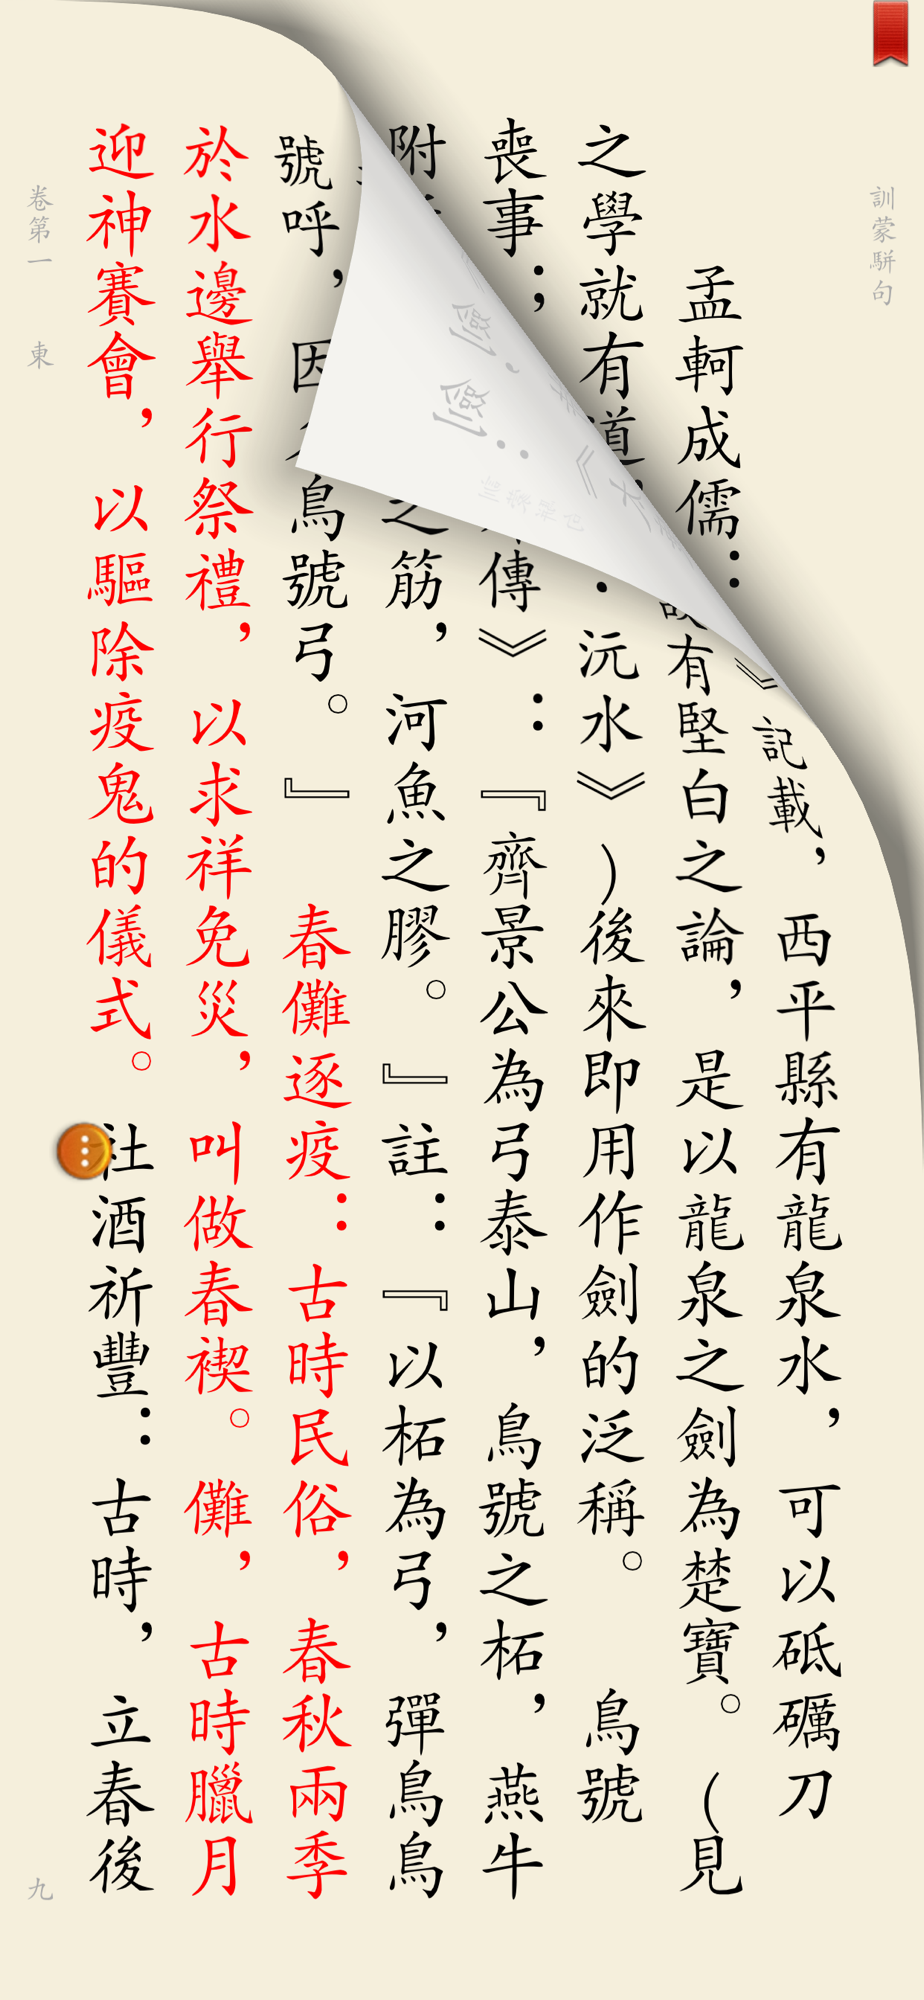 訓蒙駢句
》記載，西平縣有龍泉水，可以砥礪刀
孟軻成儒：
有堅白之論，是以龍泉之劍為楚寶。（見
之學就有道
·沅水》）後來即用作劍的泛稱。　鳥號
喪事；
傳》：『齊景公為弓泰山，鳥號之柘，燕牛
附
之筋，河魚之膠。』註：『以柘為弓，彈鳥鳥
號呼，因
鳥號弓。』　春儺逐疫：古時民俗，春秋兩季
於水邊舉行祭禮，以求祥免災，叫做春禊。儺，古時臘月
迎神賽會，以驅除疫鬼的儀式。社酒祈豐：古時，立春後
卷第一　東
九